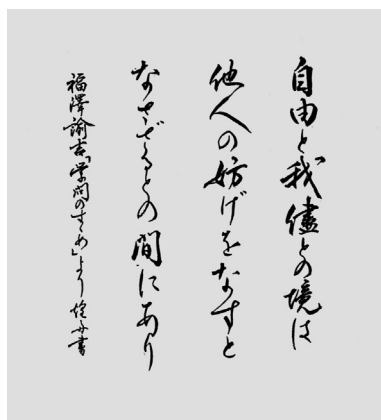 自由と我儘との境は
他人の妨げをなすと
なさゞるとの間にあり
福澤諭吉「学問のすゝめ」より 書